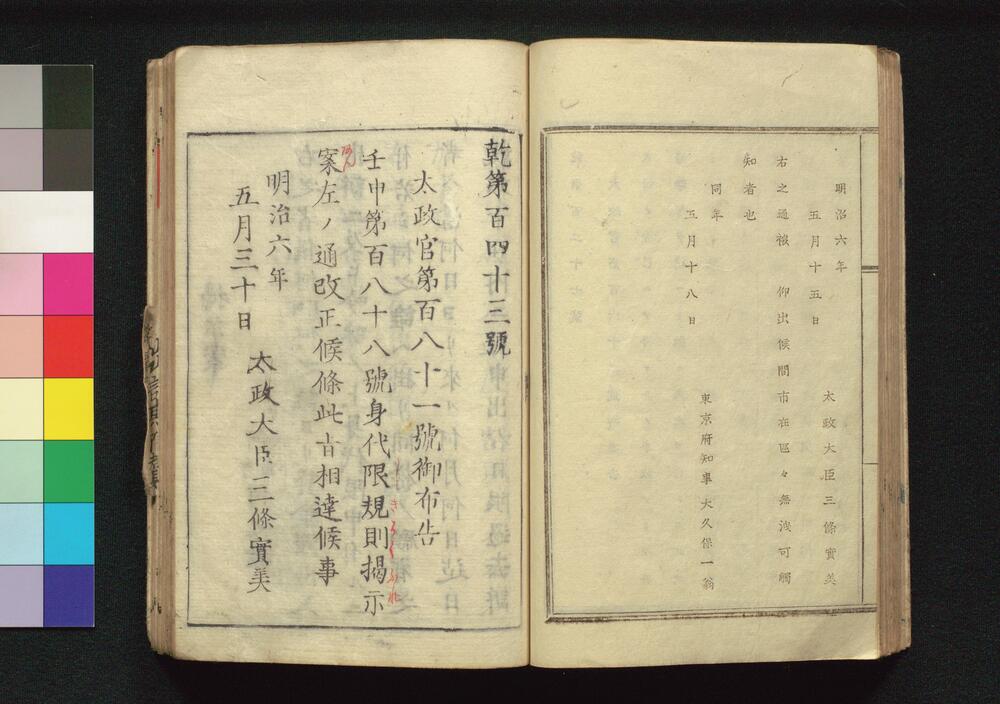 明治六年
五月十五日
太政大臣三條實美
右之通被 仰出候間市在區々無洩可觸
知者也
同年
五月十八日
東京府知事大久保一翁
乾第百四十三號
太政官第百八十一號御布告
壬申第百八十八號身代限規則揭示
案左ノ通改正候條此旨相達候事
明治六年
五月三十日
太政大臣三條實美